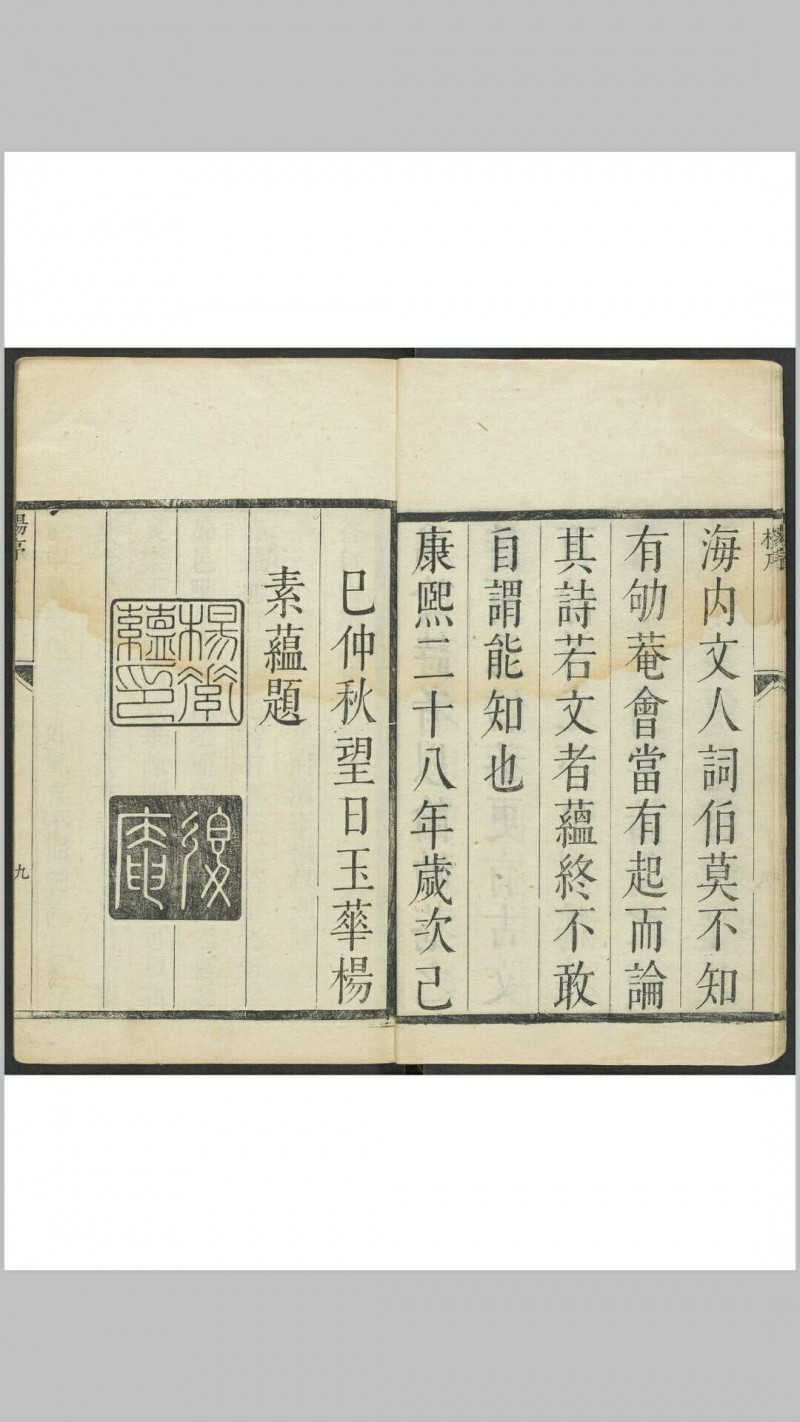 海内文人詞伯莫不知
有劬菴會當有起而論
其詩若文者蘊終不敢
自謂能知也
康熙二十八年歲次己
巳仲秋望日玉蕐楊
素蘊題
楊素蘊印
楊序
九